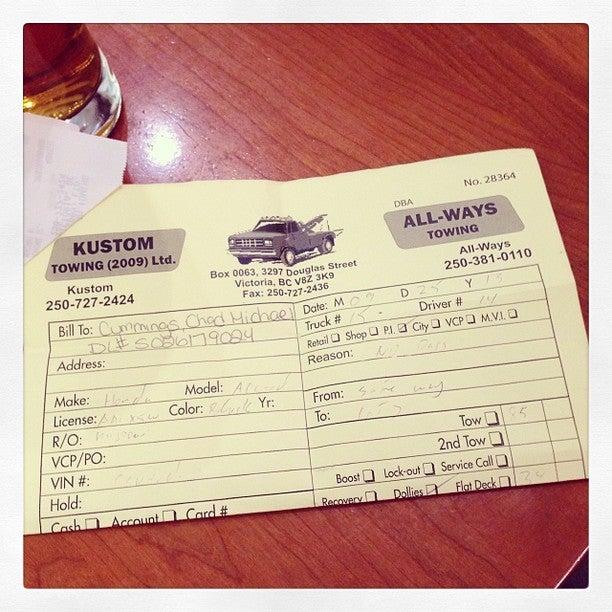 No. 28364
DBA
KUSTOM
TOWING (2009) Ltd.
ALL-WAYS
TOWING
Kustom
250-727-2424
Box 0063, 3297 Douglas Street
Victoria, BC V8Z 3K9
Fax: 250-727-2436
All-Ways
250-381-0110
Bill To: Cummings, Chad Michael
DL# 5056179024
Address:
Make: Honda Model: Accord
License: Color: Yr:
R/O:
VCP/PO:
VIN #:
Hold:
Cash Account Card #
Date: M 09 D 25 Y 13
Truck # 15 Driver # 14
Retail Shop P.I. City VCP M.V.I.
Reason: No Pass
From:
To:
Tow 85
2nd Tow
Boost Lock-out Service Call
Recovery Dollies Flat Deck